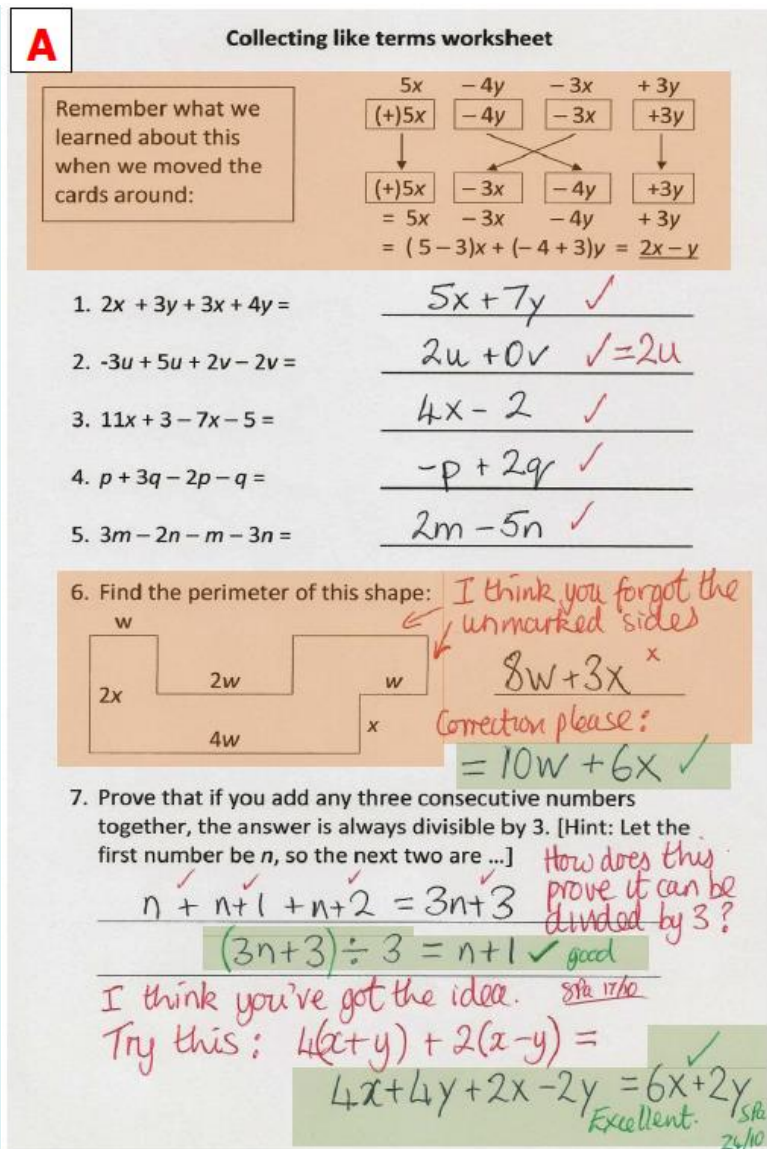 A
Collecting like terms worksheet
Remember what we
learned about this
when we moved the
cards around:
5x – 4y – 3x + 3y
(+)5x – 4y – 3x +3y
(+)5x – 3x – 4y +3y
= 5x – 3x – 4y + 3y
= ( 5 – 3)x + (– 4 + 3)y = 2x – y
1. 2x + 3y + 3x + 4y = 5x + 7y ✓
2. -3u + 5u + 2v – 2v = 2u + 0v ✓ = 2u
3. 11x + 3 – 7x – 5 = 4x - 2 ✓
4. p + 3q – 2p – q = -p + 2q ✓
5. 3m – 2n – m – 3n = 2m - 5n ✓
6. Find the perimeter of this shape:
I think you forgot the
unmarked sides
w
2w
w
2x
x
4w
8w + 3x x
Correction please:
= 10w + 6x ✓
7. Prove that if you add any three consecutive numbers
together, the answer is always divisible by 3. [Hint: Let the
first number be n, so the next two are ...]
How does this
prove it can be
divided by 3?
✓ ✓ ✓ ✓
n + n+1 + n+2 = 3n+3
(3n+3) ÷ 3 = n+1 ✓ good
I think you've got the idea. SPa 17/10
Try this: 4(x+y) + 2(x-y) =
✓
4x+4y+2x-2y = 6x+2y
Excellent. SPa
24/10